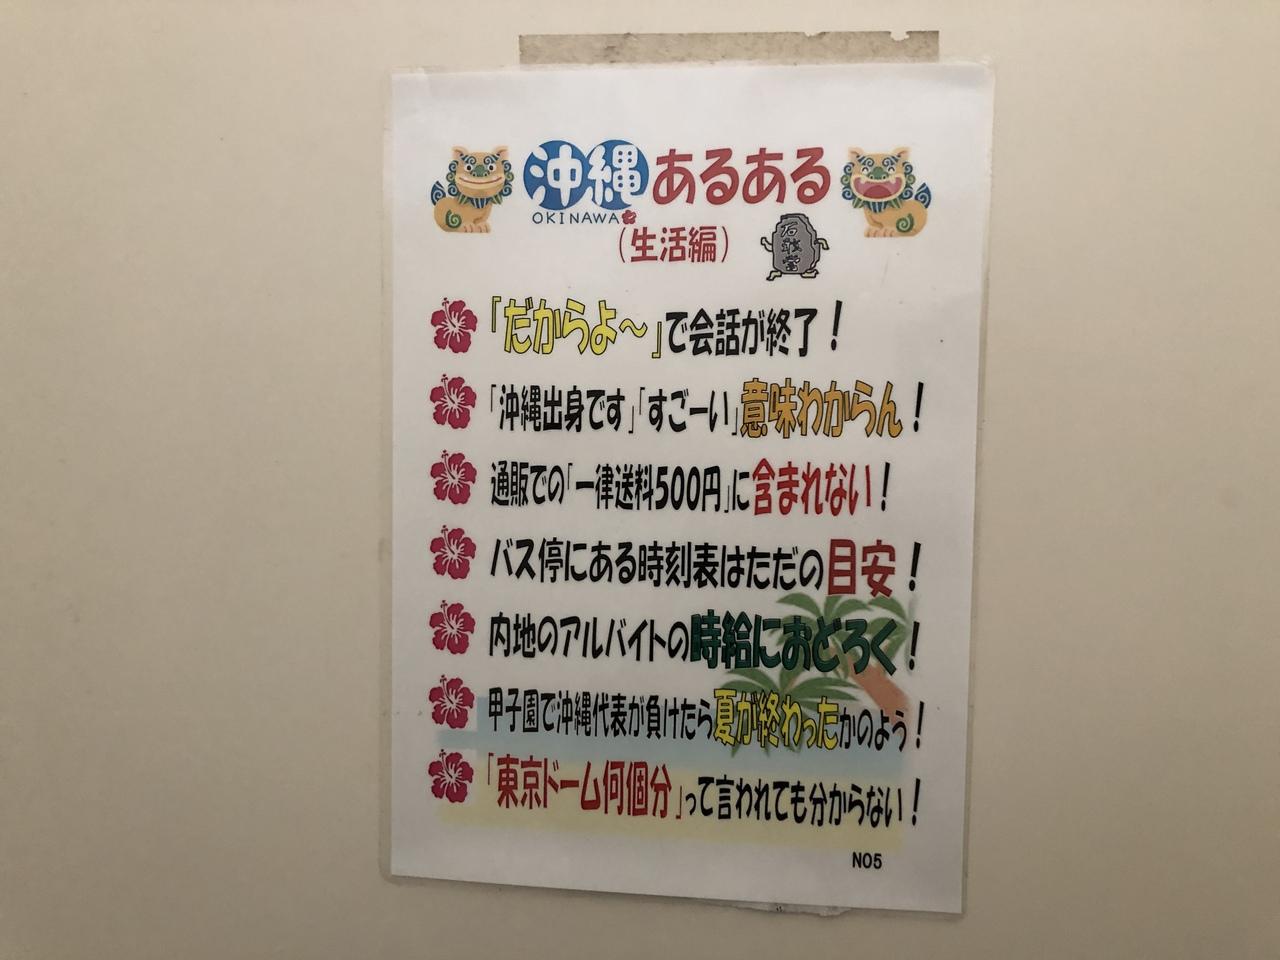 沖縄あるある
OKINAWA
(生活編)
石敢當
「だからよ～」で会話が終了！
「沖縄出身です」「すごーい」意味わからん！
通販での「一律送料500円」に含まれない！
バス停にある時刻表はただの目安！
内地のアルバイトの時給におどろく！
甲子園で沖縄代表が負けたら夏が終わったかのよう！
「東京ドーム何個分」って言われても分からない！
NO5